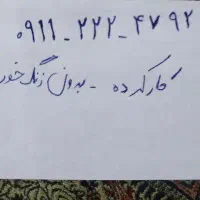 ۰۹۱۱-۲۲۲-۴۷۹۲
کارکرده - بدون زنگ خور